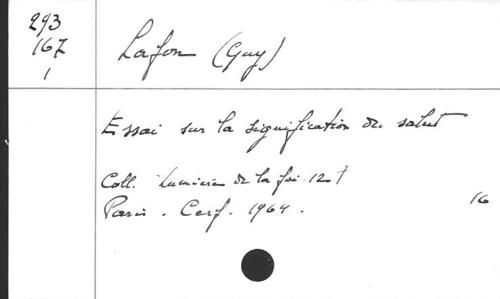 293
167
1
Lafon (Guy)
Essai sur la signification du salut
Coll. Lumière de la foi 12
Paris. Cerf. 1964.
16